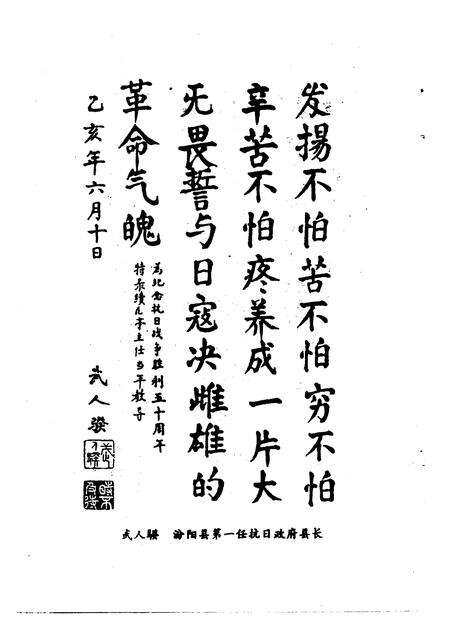 发揚不怕苦不怕穷不怕
辛苦不怕疼养成一片大
无畏誓与日寇决雌雄的
革命气魄
为纪念抗日战争胜利五十周年
特录续主任当年教导
乙亥年六月十日
武人骙
武人骙　汾阳县第一任抗日政府县长